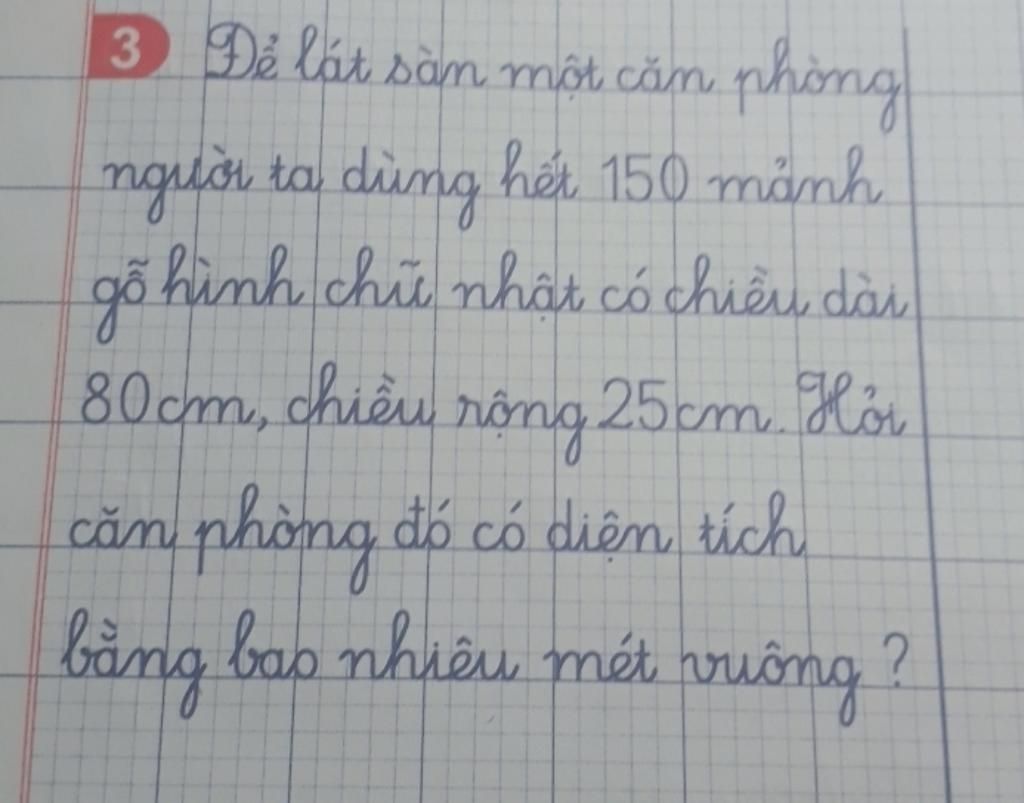 3 Để lát sàn một căn phòng
người ta dùng hết 150 mảnh
gỗ hình chữ nhật có chiều dài
80cm, chiều rộng 25cm. Hỏi
căn phòng đó có diện tích
bằng bao nhiêu mét vuông?